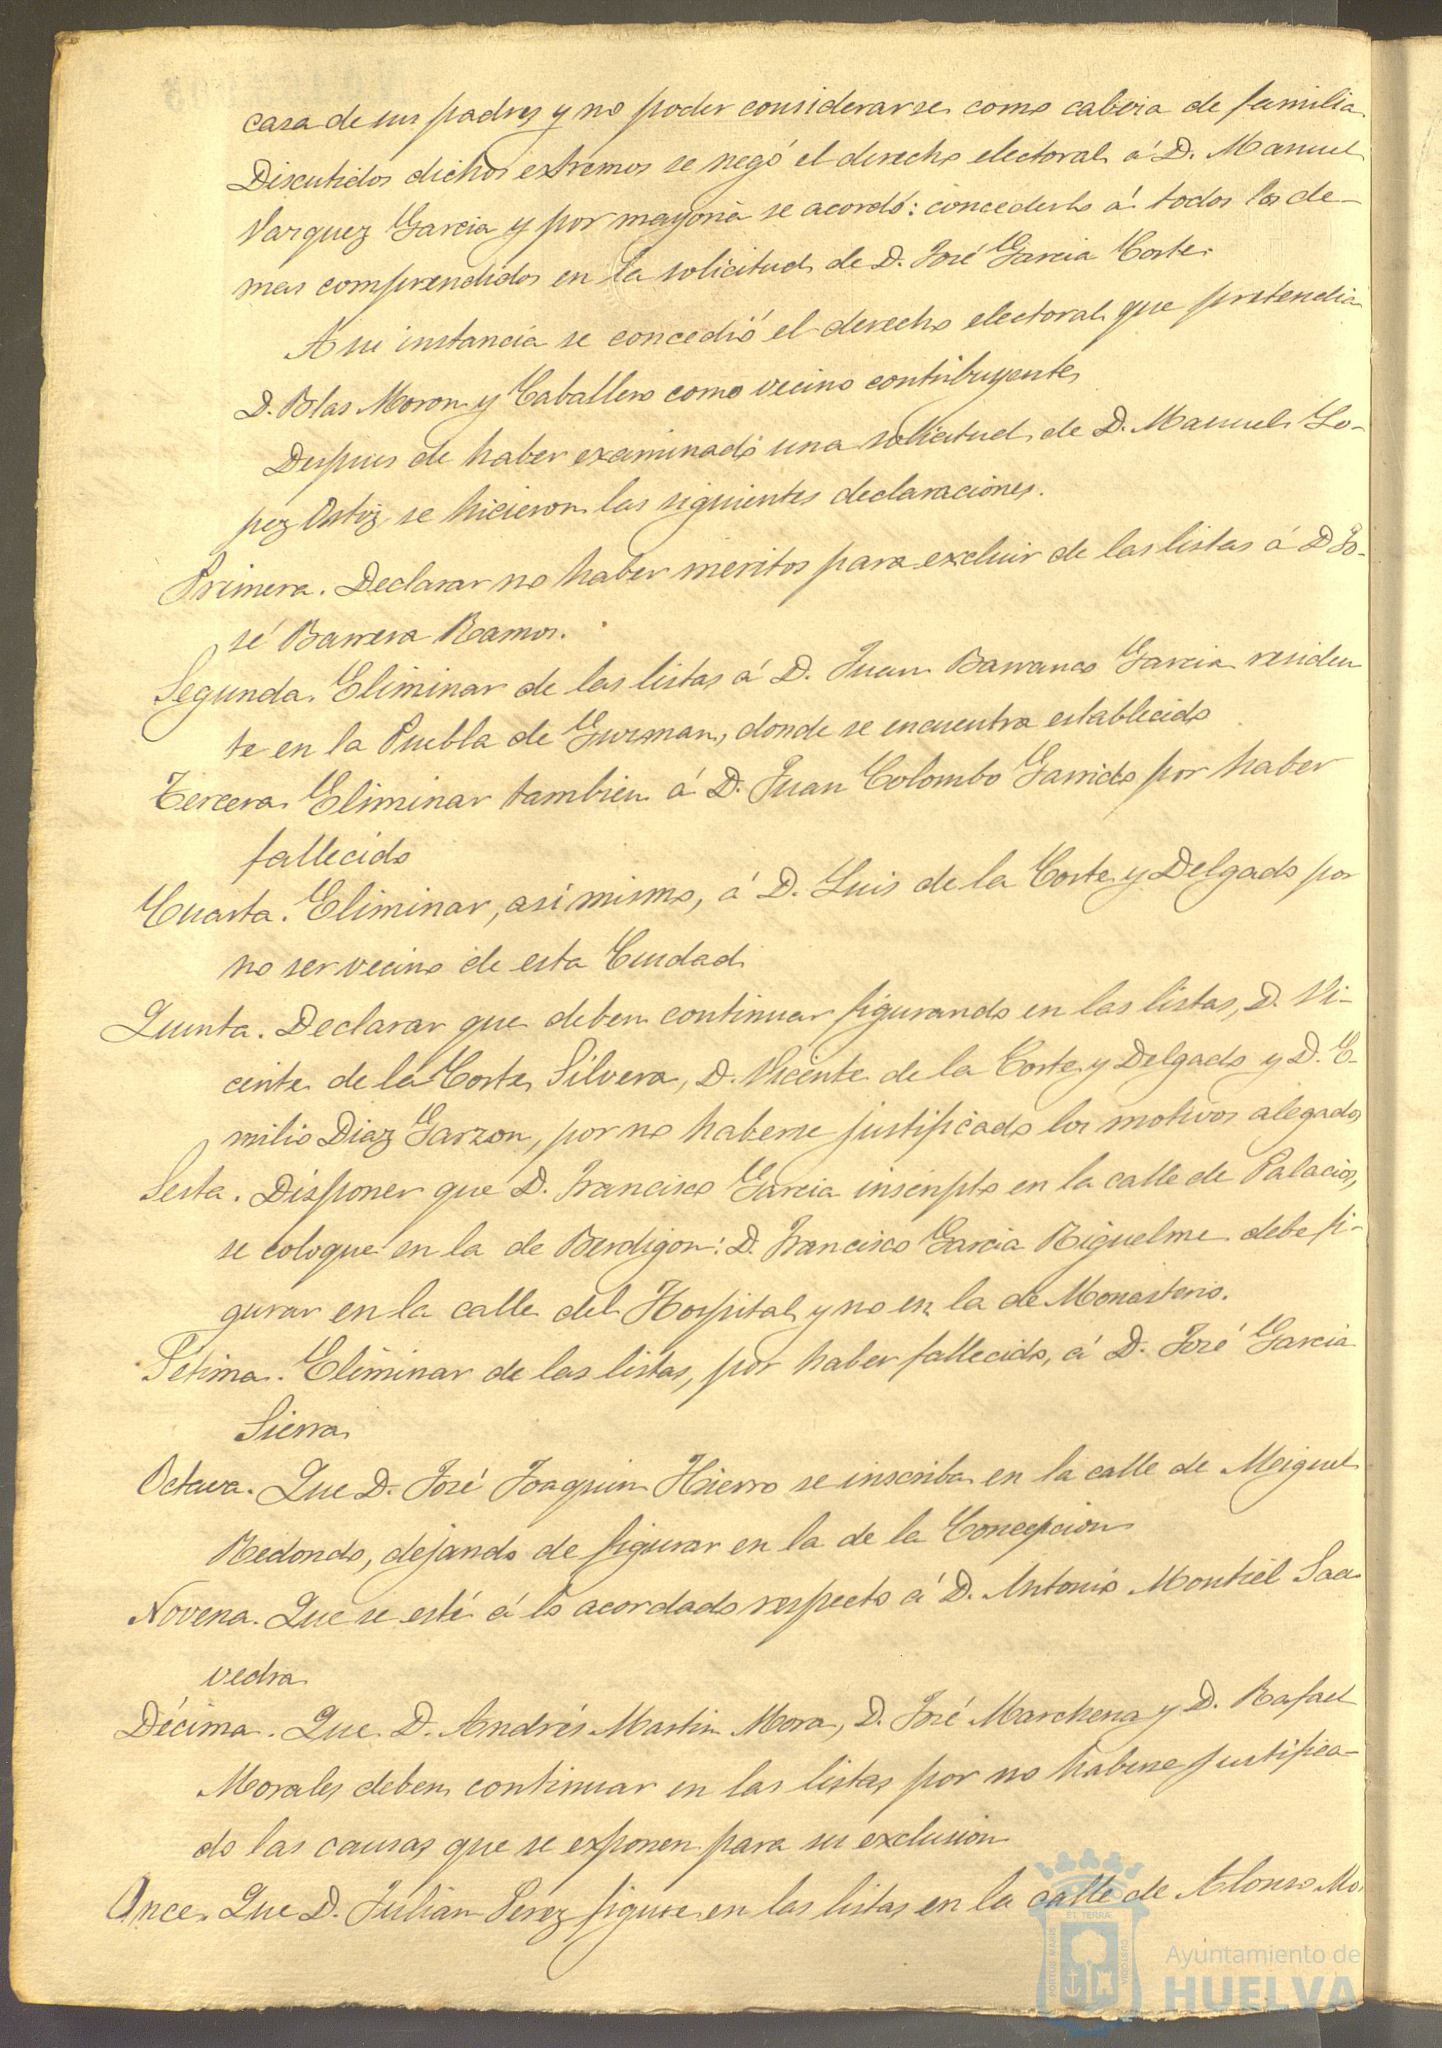 casa de sus padres y no poder considerarse como cabeza de familia
Discutidos dichos extremos se negó el derecho electoral á D. Manuel
Vazquez Garcia y por mayoría se acordó: concederlo á todos los de-
mas comprendidos en la solicitud de D. José Garcia Corte.
A su instancia se concedió el derecho electoral que pretendia
D. Blas Moron y Caballero como vecino contribuyente
Despues de haber examinado una solicitud de D. Manuel Lo-
pez Ortiz se hicieron las siguientes declaraciones.
Primera. Declarar no haber meritos para excluir de las listas á D Jo-
sé Barrera Ramos.
Segunda. Eliminar de las listas á D. Juan Barranco Garcia residen
te en la Puebla de Guzman, donde se encuentra establecido
Tercera. Eliminar tambien á D. Juan Colombo Garrido por haber
fallecido
Cuarta. Eliminar, asi mismo, á D. Luis de la Corte y Delgado por
no ser vecino de esta Ciudad.
Quinta. Declarar que deben continuar figurando en las listas, D. Vi-
cente de la Corte Silvera, D. Vicente de la Corte y Delgado y D. E-
milio Diaz Garzon, por no haberse justificado los motivos alegados
Sesta. Disponer que D. Francisco Garcia inscripto en la calle de Palacios,
se coloque en la de Berdigon: D. Francisco Garcia Riquelme debe fi-
gurar en la calle del Hospital y no en la de Monasterio.
Sétima. Eliminar de las listas, por haber fallecido, á D. José Garcia
Sierra
Octava. Que D. José Joaquin Hierro se inscriba en la calle de Miguel
Redondo, dejando de figurar en la de la Concepcion
Novena. Que se esté á lo acordado respecto á D. Antonio Montiel Saa
vedra
Décima. Que D. Andrés Martin Mora, D. José Marchena y D. Rafael
Morales deben continuar en las listas por no haberse justifica-
do las causas que se exponen para su exclusion
Once. Que D. Julian Perez figure en las listas en la calle de Alonso Mo.
PORTUS MARIS
ET TERRAE
CUSTODIA
Ayuntamiento de
HUELVA